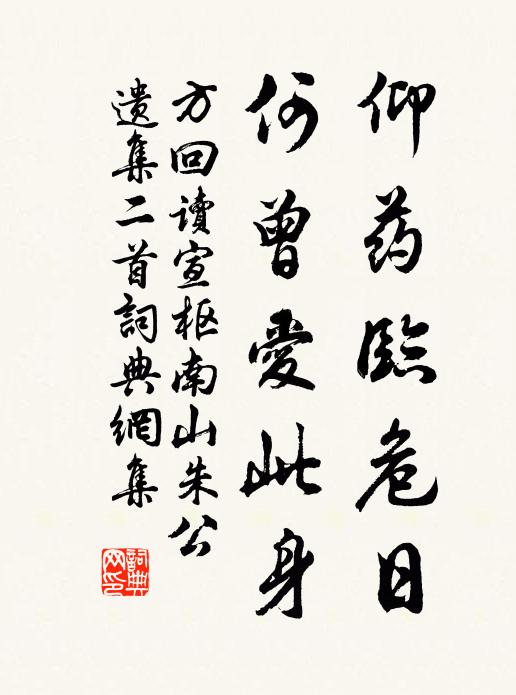 仰药臨危日
何曾愛此身
方回讀宣枢南山朱公
遺集二首詞典網集
詞典網印